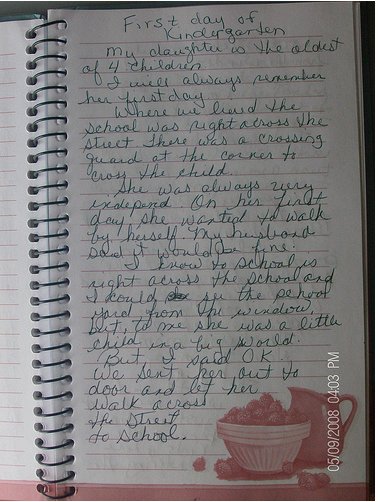 First day of
Kindergarten
My daughter is the oldest
of 4 children
I will always remember
her first day
Where we lived the
school was right across the
street There was a crossing
guard at the corner to
cross the child.
She was always very
independ. On her first
day she wanted to walk
by herself. My husband
said it would be fine.
I know to school is
right across the school and
I could see the school
yard from the window,
but, to me she was a little
child in a big world.
But, I said OK.
We sent her out to
door and let her
walk across
the street
to school.
05/09/2008 04:03 PM